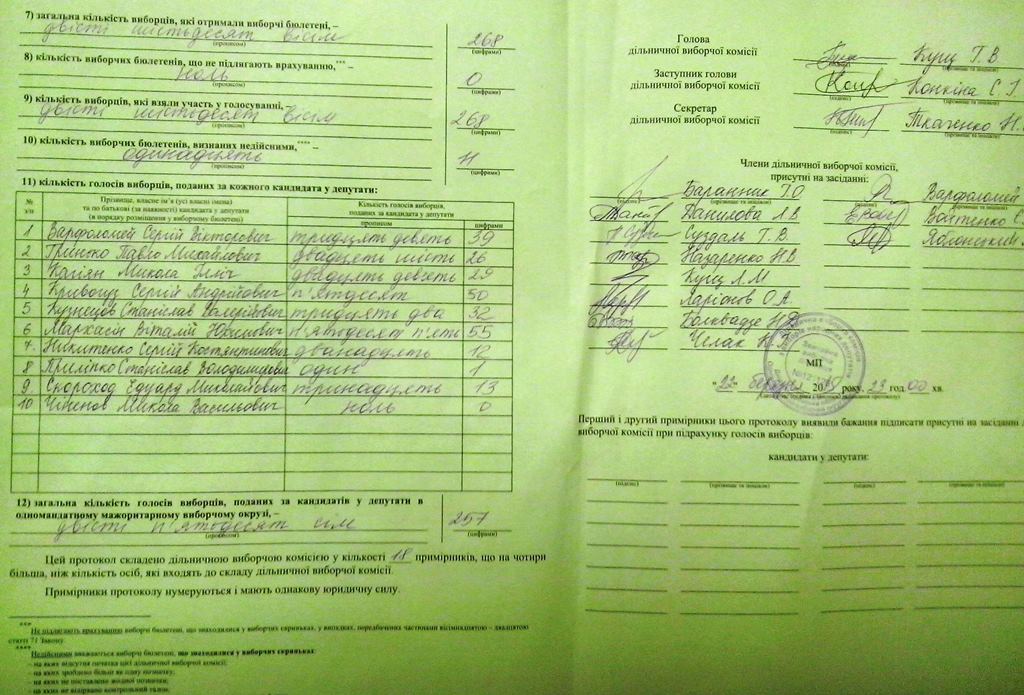 7) загальна кількість виборців, які отримали виборчі бюлетені, –
двісті шістьдесят вісім
268
(прописом)
(цифрами)
8) кількість виборчих бюлетенів, що не підлягають врахуванню,*** –
ноль
0
(прописом)
(цифрами)
9) кількість виборців, які взяли участь у голосуванні, –
двісті шістьдесят вісім
268
(прописом)
(цифрами)
10) кількість виборчих бюлетенів, визнаних недійсними,**** –
одинадцять
11
(прописом)
(цифрами)
11) кількість голосів виборців, поданих за кожного кандидата у депутати:
№ з/п
Прізвище, власне ім'я (усі власні імена)
та по батькові (за наявності) кандидата у депутати
(в порядку розміщення у виборчому бюлетені)
Кількість голосів виборців,
поданих за кандидата у депутати
прописом цифрами
1 Варфоломей Сергій Вікторович тридцять девять 39
2 Гринько Павло Михайлович двадцять шисть 26
3 Микола Ілліч двадцять девять 29
4 Кривошу Сергій Андрійович п'ятдесят 50
5 Кузнецов Станіслав Валерійович тридцять два 32
6 Маркасін Віталій п'ятдесят п'ять 55
7. Никитенко Сергій Костянтинович дванадцять 12
8 Приліпко Станіслав Володимирович один 1
9 Скороход Едуард Миколайович тринадцять 13
10 Микола Васильович ноль 0
12) загальна кількість голосів виборців, поданих за кандидатів у депутати в
одномандатному мажоритарному виборчому окрузі, –
двісті п'ятдесят сім
257
(прописом)
(цифрами)
Цей протокол складено дільничною виборчою комісією у кількості 18 примірників, що на чотири
більша, ніж кількість осіб, які входять до складу дільничної виборчої комісії.
Примірники протоколу нумеруються і мають однакову юридичну силу.
***
Не підлягають врахуванню виборчі бюлетені, що знаходилися у виборчих скриньках, у випадках, передбачених частинами вісімнадцятою – двадцятою
статті 71 Закону.
****
Недійсними вважаються виборчі бюлетені, що знаходилися у виборчих скриньках:
- на яких відсутня печатка цієї дільничної виборчої комісії;
- на яких зроблено більш як одну позначку;
- на яких не поставлено жодної позначки;
- на яких не відірвано контрольний талон;
Голова
дільничної виборчої комісії
Кущ Т. В
Заступник голови
дільничної виборчої комісії
Конкіна С. Г.
(підпис) (прізвище та ініціали)
Секретар
дільничної виборчої комісії
Ткаченко Н.
(підпис) (прізвище та ініціали)
Члени дільничної виборчої комісії,
присутні на засіданні:
Баранник Г.О. Варфоломей
Данилова Л.В. Войтенко С.
Суздаль Т. В. Яблонський
Назаренко Н.В
Кущ Л.М
Ларіонов О.А.
Колквадзе Н.
Челак Н.В.
МП
"22" березня 20 року, 23 год. 00 хв.
Перший і другий примірники цього протоколу виявили бажання підписати присутні на засіданні
виборчої комісії при підрахунку голосів виборців:
кандидати у депутати:
(підпис) (прізвище та ініціали) (підпис) (прізвище та ініціали)